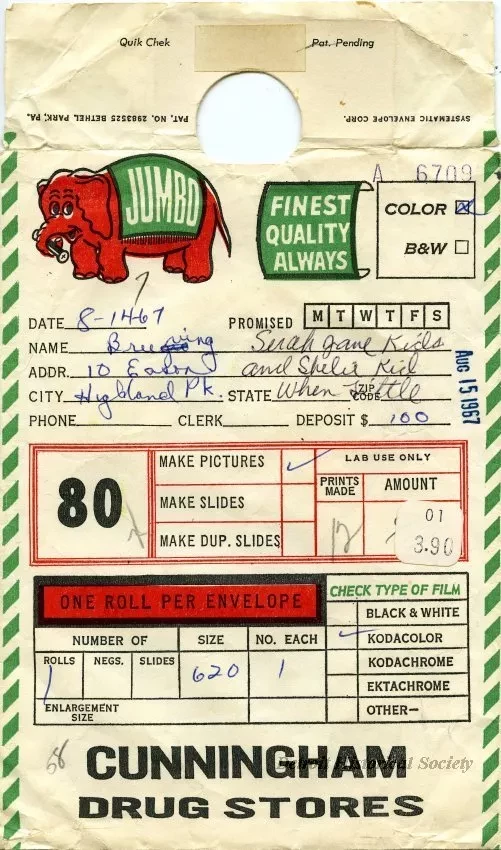 Quik Chek Pat. Pending
SYSTEMATIC ENVELOPE CORP. PAT. NO. 2983525 BETHEL PARK, PA.
JUMBO
FINEST
QUALITY
ALWAYS
A 6709
COLOR
B&W
DATE 8-1467 PROMISED M T W T F S
NAME Kids
ADDR. 10 and Kid
CITY Highland Pk. STATE When ZIP CODE
Aug 15 1967
PHONE CLERK DEPOSIT $ 100
80
MAKE PICTURES ✓
MAKE SLIDES
MAKE DUP. SLIDES
LAB USE ONLY
PRINTS MADE AMOUNT
12
01
3.90
ONE ROLL PER ENVELOPE
NUMBER OF SIZE NO. EACH
ROLLS NEGS. SLIDES
1 620 1
ENLARGEMENT SIZE
CHECK TYPE OF FILM
BLACK & WHITE
✓ KODACOLOR
KODACHROME
EKTACHROME
OTHER—
58
CUNNINGHAM
DRUG STORES
Detroit Historical Society